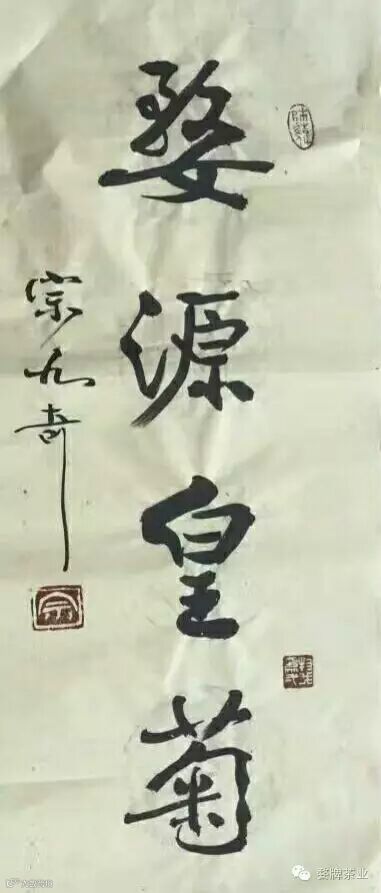 婺源皇菊
宗九奇
婺牌茶业